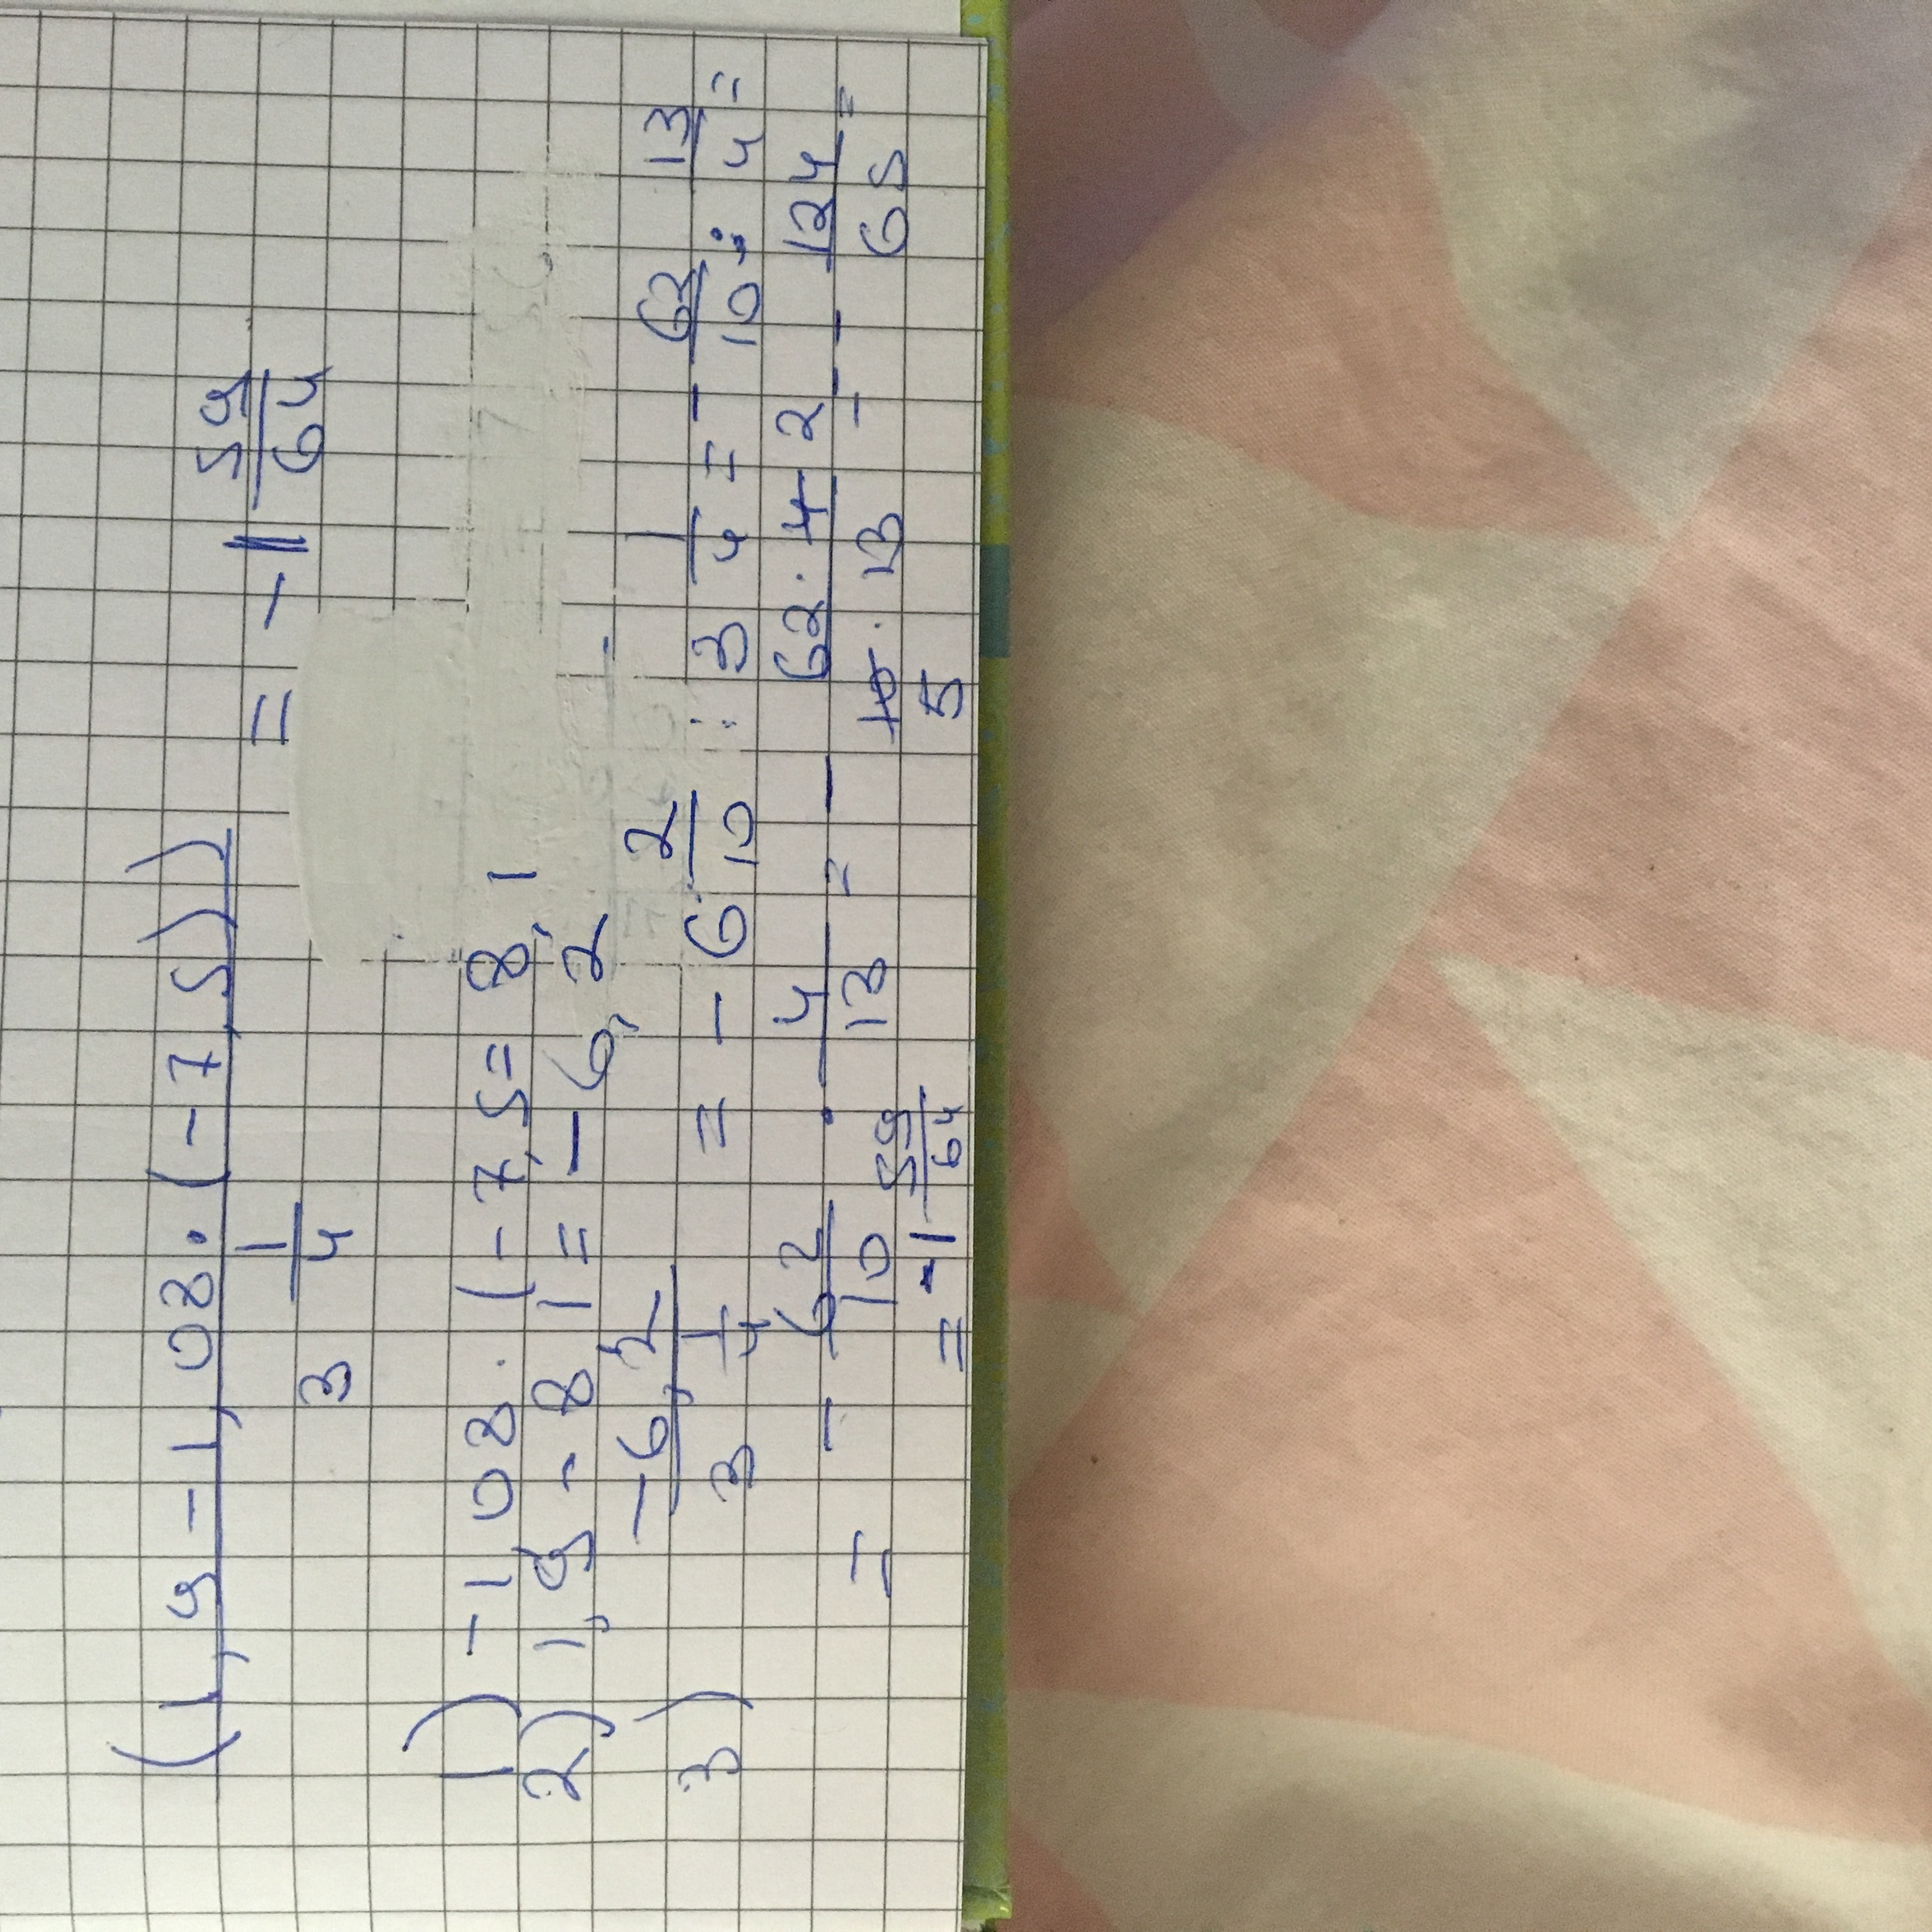 (1,9 - 1,08 · (-7,5)) = -1 59/64
3 1/4
1) -1,08 · (-7,5 = 8,1
2) 1,9 - 8,1 = -6,2
3) -6,2 / 3 1/4 = -6 2/10 : 3 1/4 = - 62/10 : 13/4 =
= - 62/10 · 4/13 = - 62·4 2 / 10·13 5 = - 124/65 =
= -1 59/64